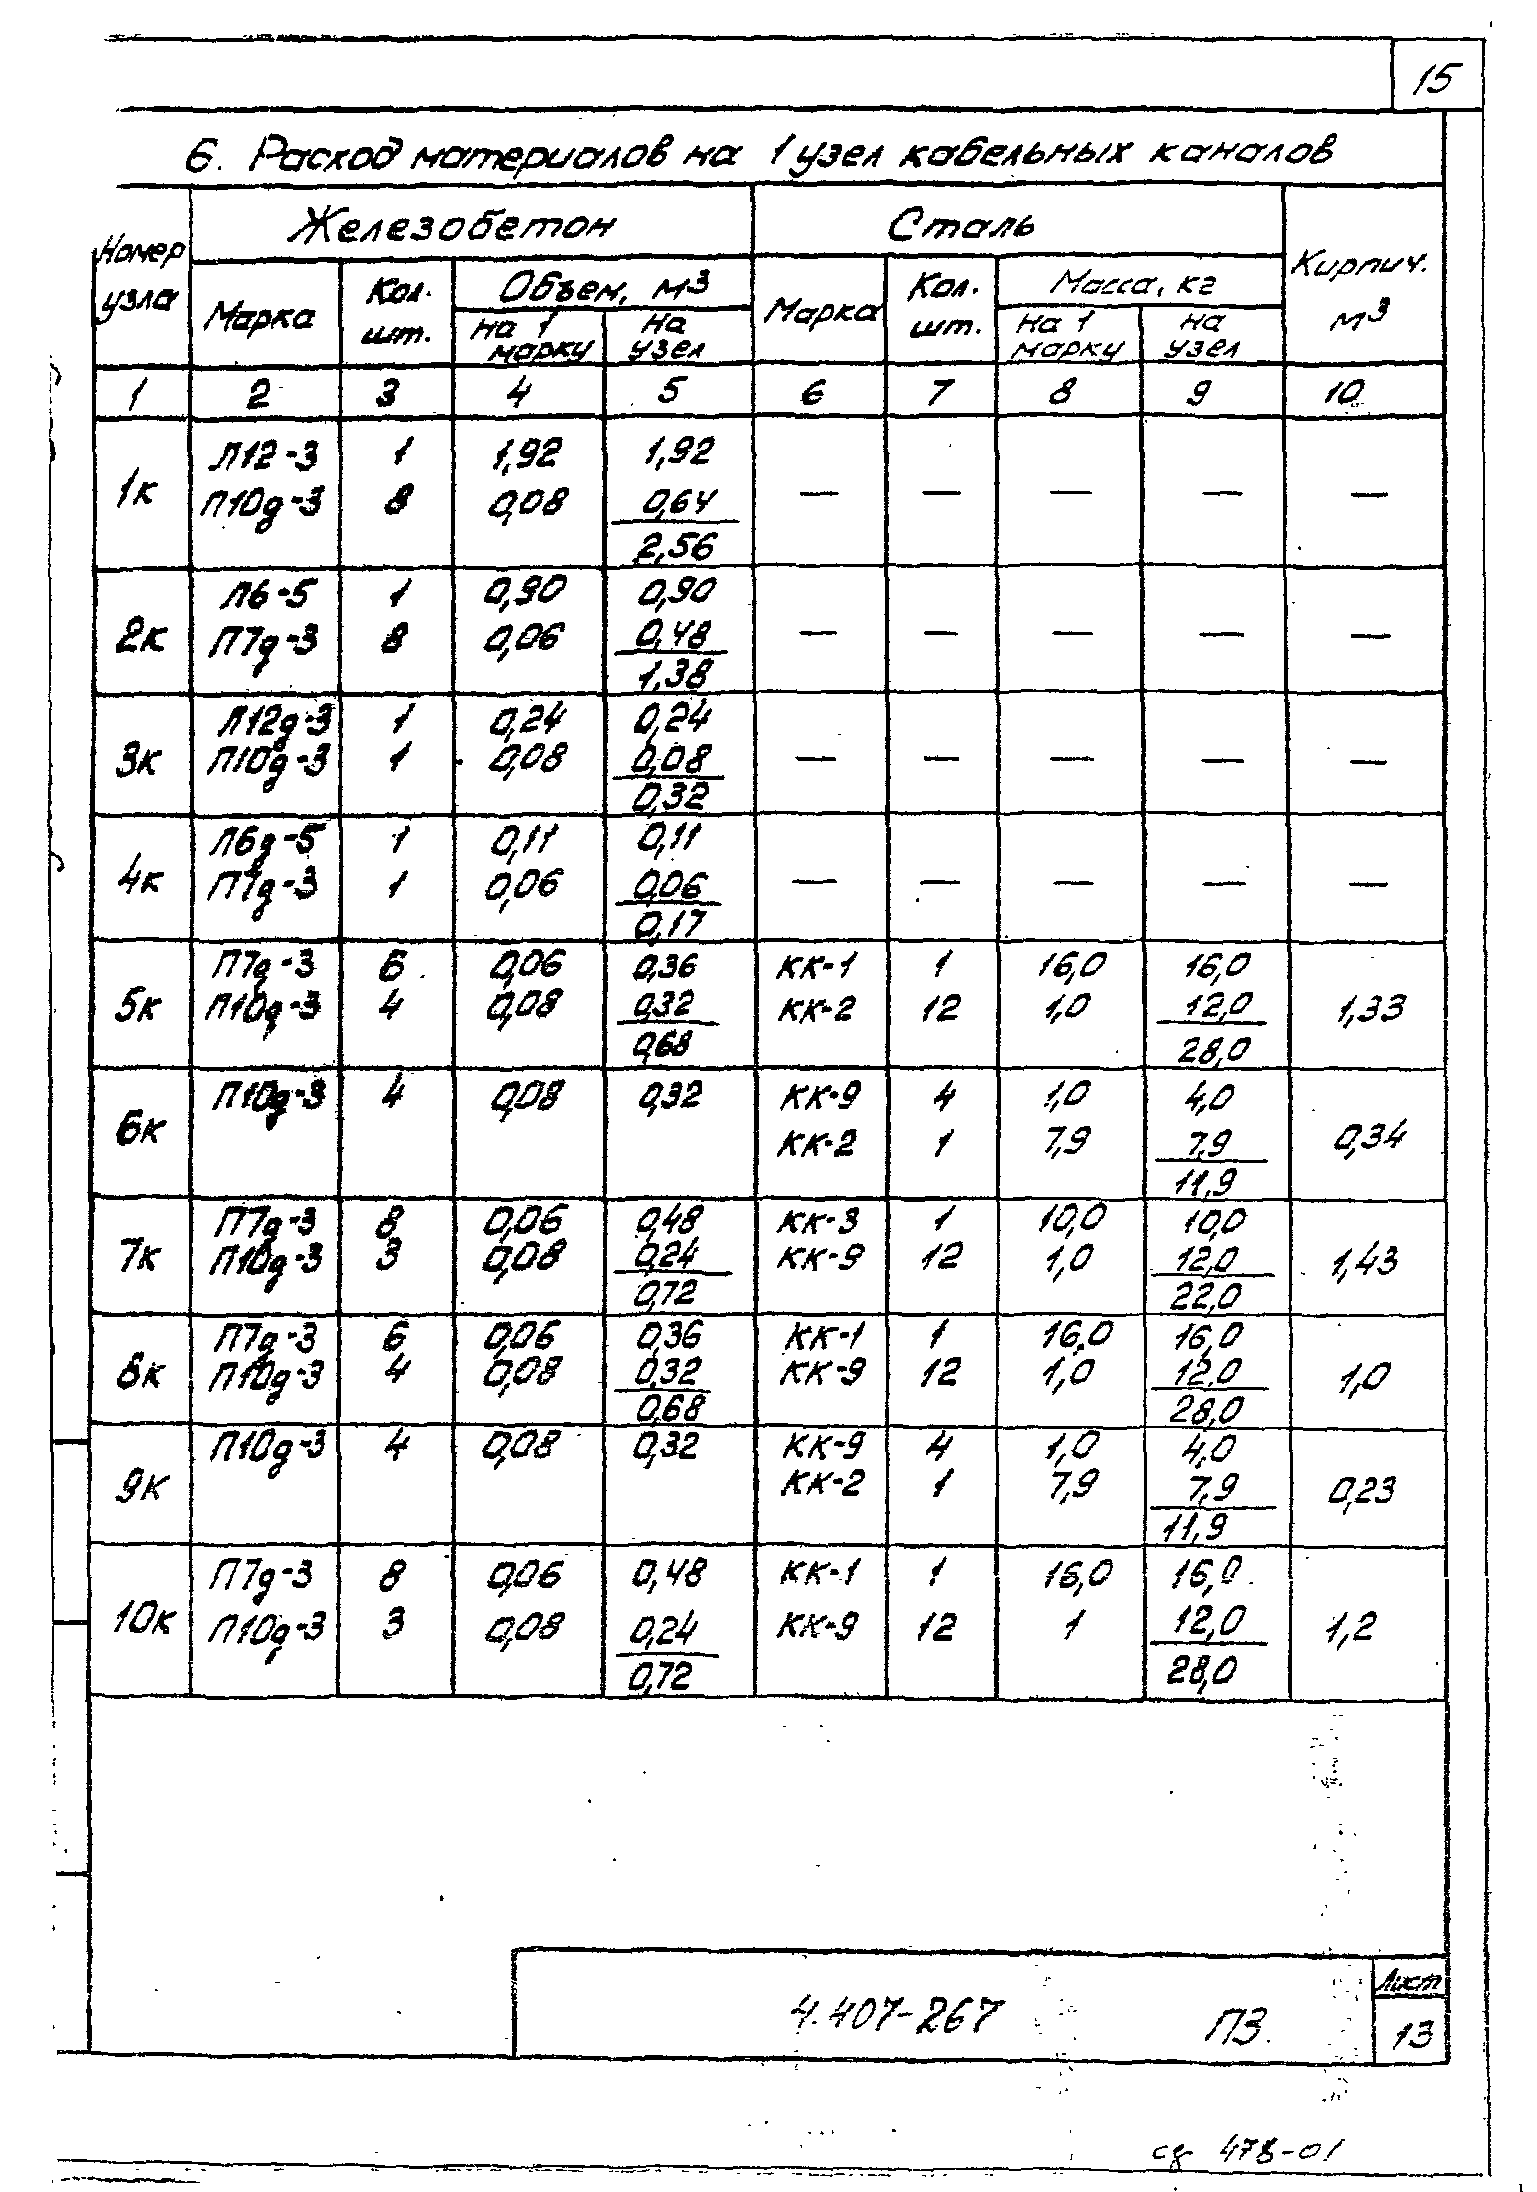 15
6. Расход материалов на 1 узел кабельных каналов
Номер узла | Железобетон | Сталь | Кирпич. м3
Марка | Кол. шт. | Объем, м3 | Марка | Кол. шт. | Масса, кг
на 1 марку | на узел | на 1 марку | на узел
1 | 2 | 3 | 4 | 5 | 6 | 7 | 8 | 9 | 10
1к | Л12-3 | 1 | 1,92 | 1,92 | — | — | — | — | —
П10д-3 | 8 | 0,08 | 0,64
2,56
2к | Л6-5 | 1 | 0,90 | 0,90 | — | — | — | — | —
П7д-3 | 8 | 0,06 | 0,48
1,38
3к | Л12д-3 | 1 | 0,24 | 0,24 | — | — | — | — | —
П10д-3 | 1 | 0,08 | 0,08
0,32
4к | Л6д-5 | 1 | 0,11 | 0,11 | — | — | — | — | —
П7д-3 | 1 | 0,06 | 0,06
0,17
5к | П7д-3 | 6 | 0,06 | 0,36 | КК-1 | 1 | 16,0 | 16,0 | 1,33
П10д-3 | 4 | 0,08 | 0,32 | КК-2 | 12 | 1,0 | 12,0
0,68 | 28,0
6к | П10д-3 | 4 | 0,08 | 0,32 | КК-9 | 4 | 1,0 | 4,0 | 0,34
КК-2 | 1 | 7,9 | 7,9
11,9
7к | П7д-3 | 8 | 0,06 | 0,48 | КК-3 | 1 | 10,0 | 10,0 | 1,43
П10д-3 | 3 | 0,08 | 0,24 | КК-9 | 12 | 1,0 | 12,0
0,72 | 22,0
8к | П7д-3 | 6 | 0,06 | 0,36 | КК-1 | 1 | 16,0 | 16,0 | 1,0
П10д-3 | 4 | 0,08 | 0,32 | КК-9 | 12 | 1,0 | 12,0
0,68 | 28,0
9к | П10д-3 | 4 | 0,08 | 0,32 | КК-9 | 4 | 1,0 | 4,0 | 0,23
КК-2 | 1 | 7,9 | 7,9
11,9
10к | П7д-3 | 8 | 0,06 | 0,48 | КК-1 | 1 | 16,0 | 16,0 | 1,2
П10д-3 | 3 | 0,08 | 0,24 | КК-9 | 12 | 1 | 12,0
0,72 | 28,0
4.407-267 ПЗ.
Лист
13
сф 478-01